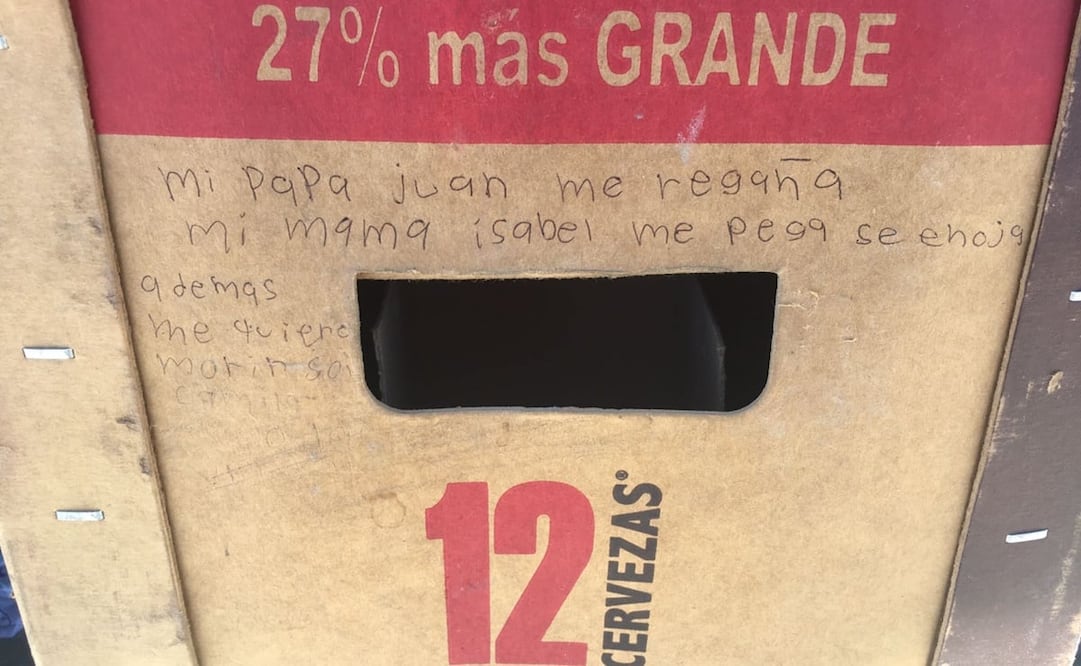 27% más GRANDE
mi papa juan me regaña
mi mama isabel me pega se enoja
ademas
me quiero
morir soi
Camila
12
CERVEZAS®